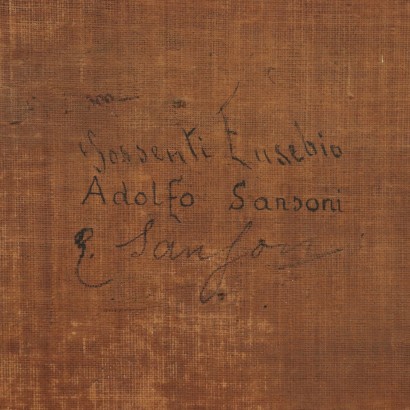 Sossenti Eusebio
Adolfo Sansoni
Sansoni